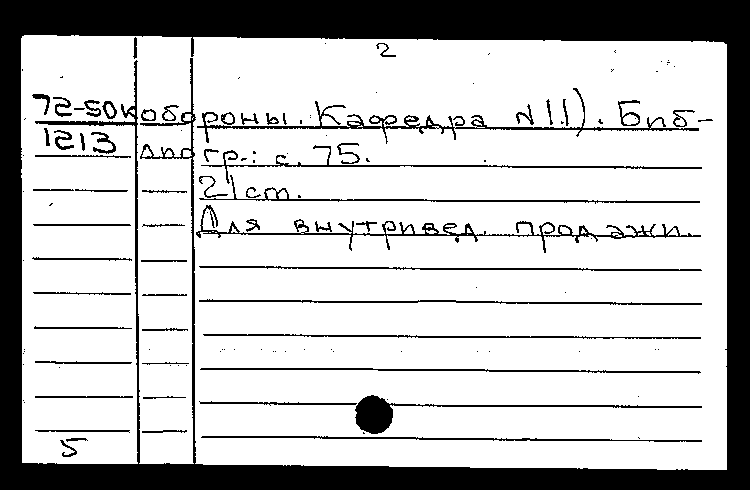 2
72-50к обороны. Кафедра N 11). Биб-
1213 лиогр.: с. 75.
21 cm.
Для внутривед. продажи.
5